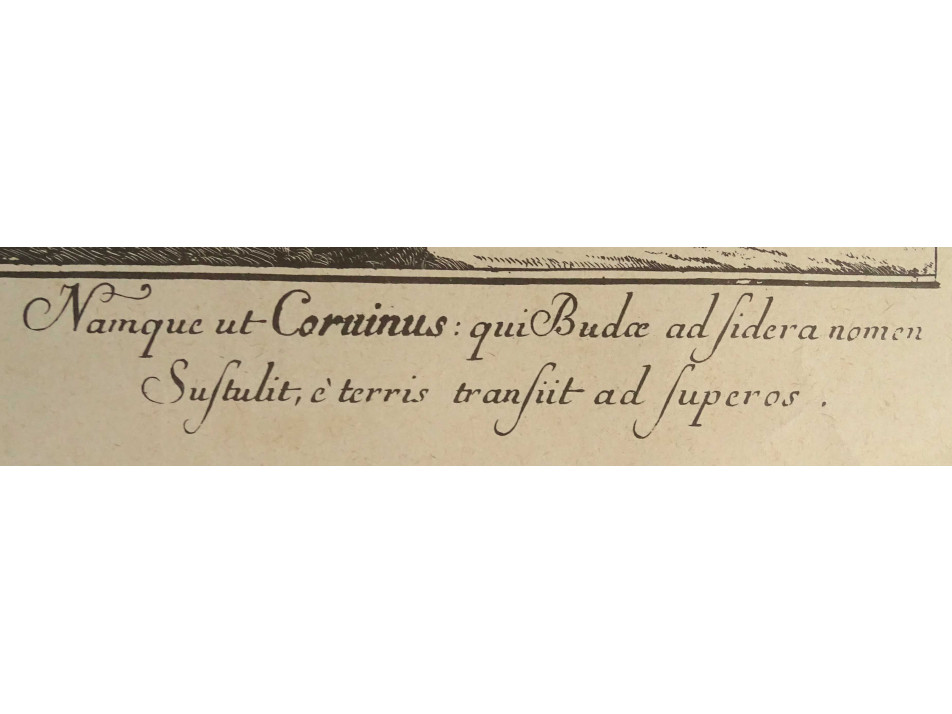 Namque ut Coruinus: qui Budæ ad ſidera nomen
Suſtulit, è terris tranſijt ad ſuperos.